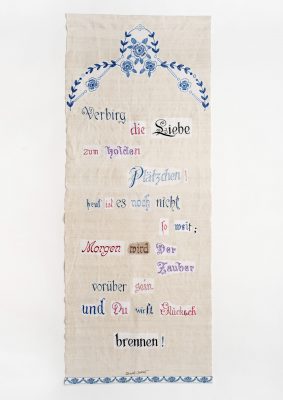 Verbirg
die Liebe
zum holden
Plätzchen!
heut ist es noch nicht
so weit;
Morgen wird Der
Zauber
vorüber sein
und Du wirst Glücksch
brennen!